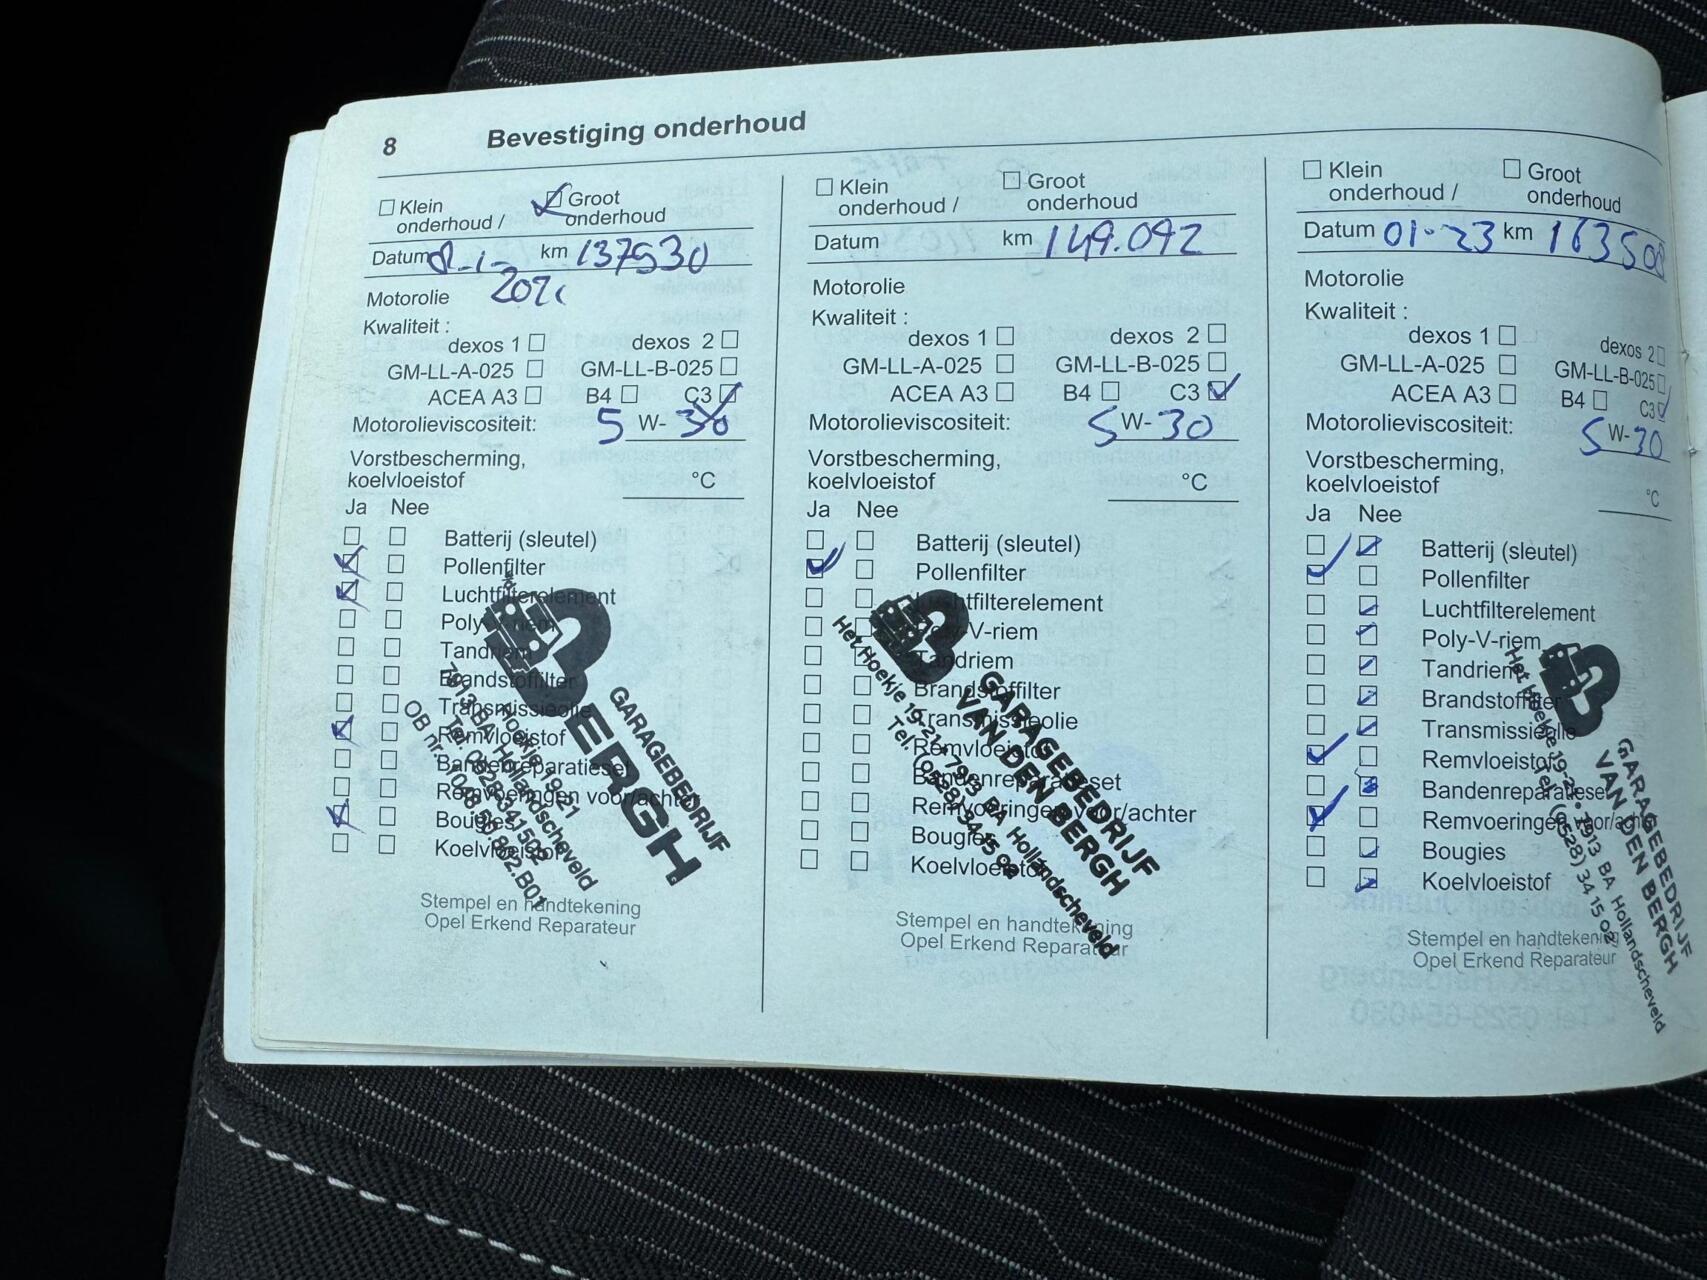 8 Bevestiging onderhoud
Klein onderhoud / Groot onderhoud
Datum 8-1- km 137530
Motorolie
Kwaliteit :
dexos 1 dexos 2
GM-LL-A-025 GM-LL-B-025
ACEA A3 B4 C3
Motorolieviscositeit: 5 W- 30
Vorstbescherming,
koelvloeistof °C
Ja Nee
Batterij (sleutel)
Pollenfilter
Luchtfilterelement
Poly-V-riem
Tandriem
Brandstoffilter
Transmissieolie
Remvloeistof
Bandenreparatieset
Remvoeringen voor/achter
Bougies
Koelvloeistof
BERGH
GARAGEBEDRIJF
Hoekje 19-21
7913 BA Hollandscheveld
Tel. 0528-341502
Stempel en handtekening
Opel Erkend Reparateur
Klein onderhoud / Groot onderhoud
Datum km 149.092
Motorolie
Kwaliteit :
dexos 1 dexos 2
GM-LL-A-025 GM-LL-B-025
ACEA A3 B4 C3
Motorolieviscositeit: 5 W- 30
Vorstbescherming,
koelvloeistof °C
Ja Nee
Batterij (sleutel)
Pollenfilter
Luchtfilterelement
Poly-V-riem
Tandriem
Brandstoffilter
Transmissieolie
Remvloeistof
Bandenreparatieset
Remvoeringen voor/achter
Bougies
Koelvloeistof
GARAGEBEDRIJF
VAN DEN BERGH
Het Hoekje 19-21 - 7913 BA Hollandscheveld
Tel. (0528) 34 15 02
Stempel en handtekening
Opel Erkend Reparateur
Klein onderhoud / Groot onderhoud
Datum 01-23 km 163500
Motorolie
Kwaliteit :
dexos 1 dexos 2
GM-LL-A-025 GM-LL-B-025
ACEA A3 B4 C3
Motorolieviscositeit: 5 W- 30
Vorstbescherming,
koelvloeistof °C
Ja Nee
Batterij (sleutel)
Pollenfilter
Luchtfilterelement
Poly-V-riem
Tandriem
Brandstoffilter
Transmissieolie
Remvloeistof
Bandenreparatieset
Remvoeringen voor/achter
Bougies
Koelvloeistof
GARAGEBEDRIJF
VAN DEN BERGH
Het Hoekje 19-21 - 7913 BA Hollandscheveld
Tel. (0528) 34 15 02
Stempel en handtekening
Opel Erkend Reparateur